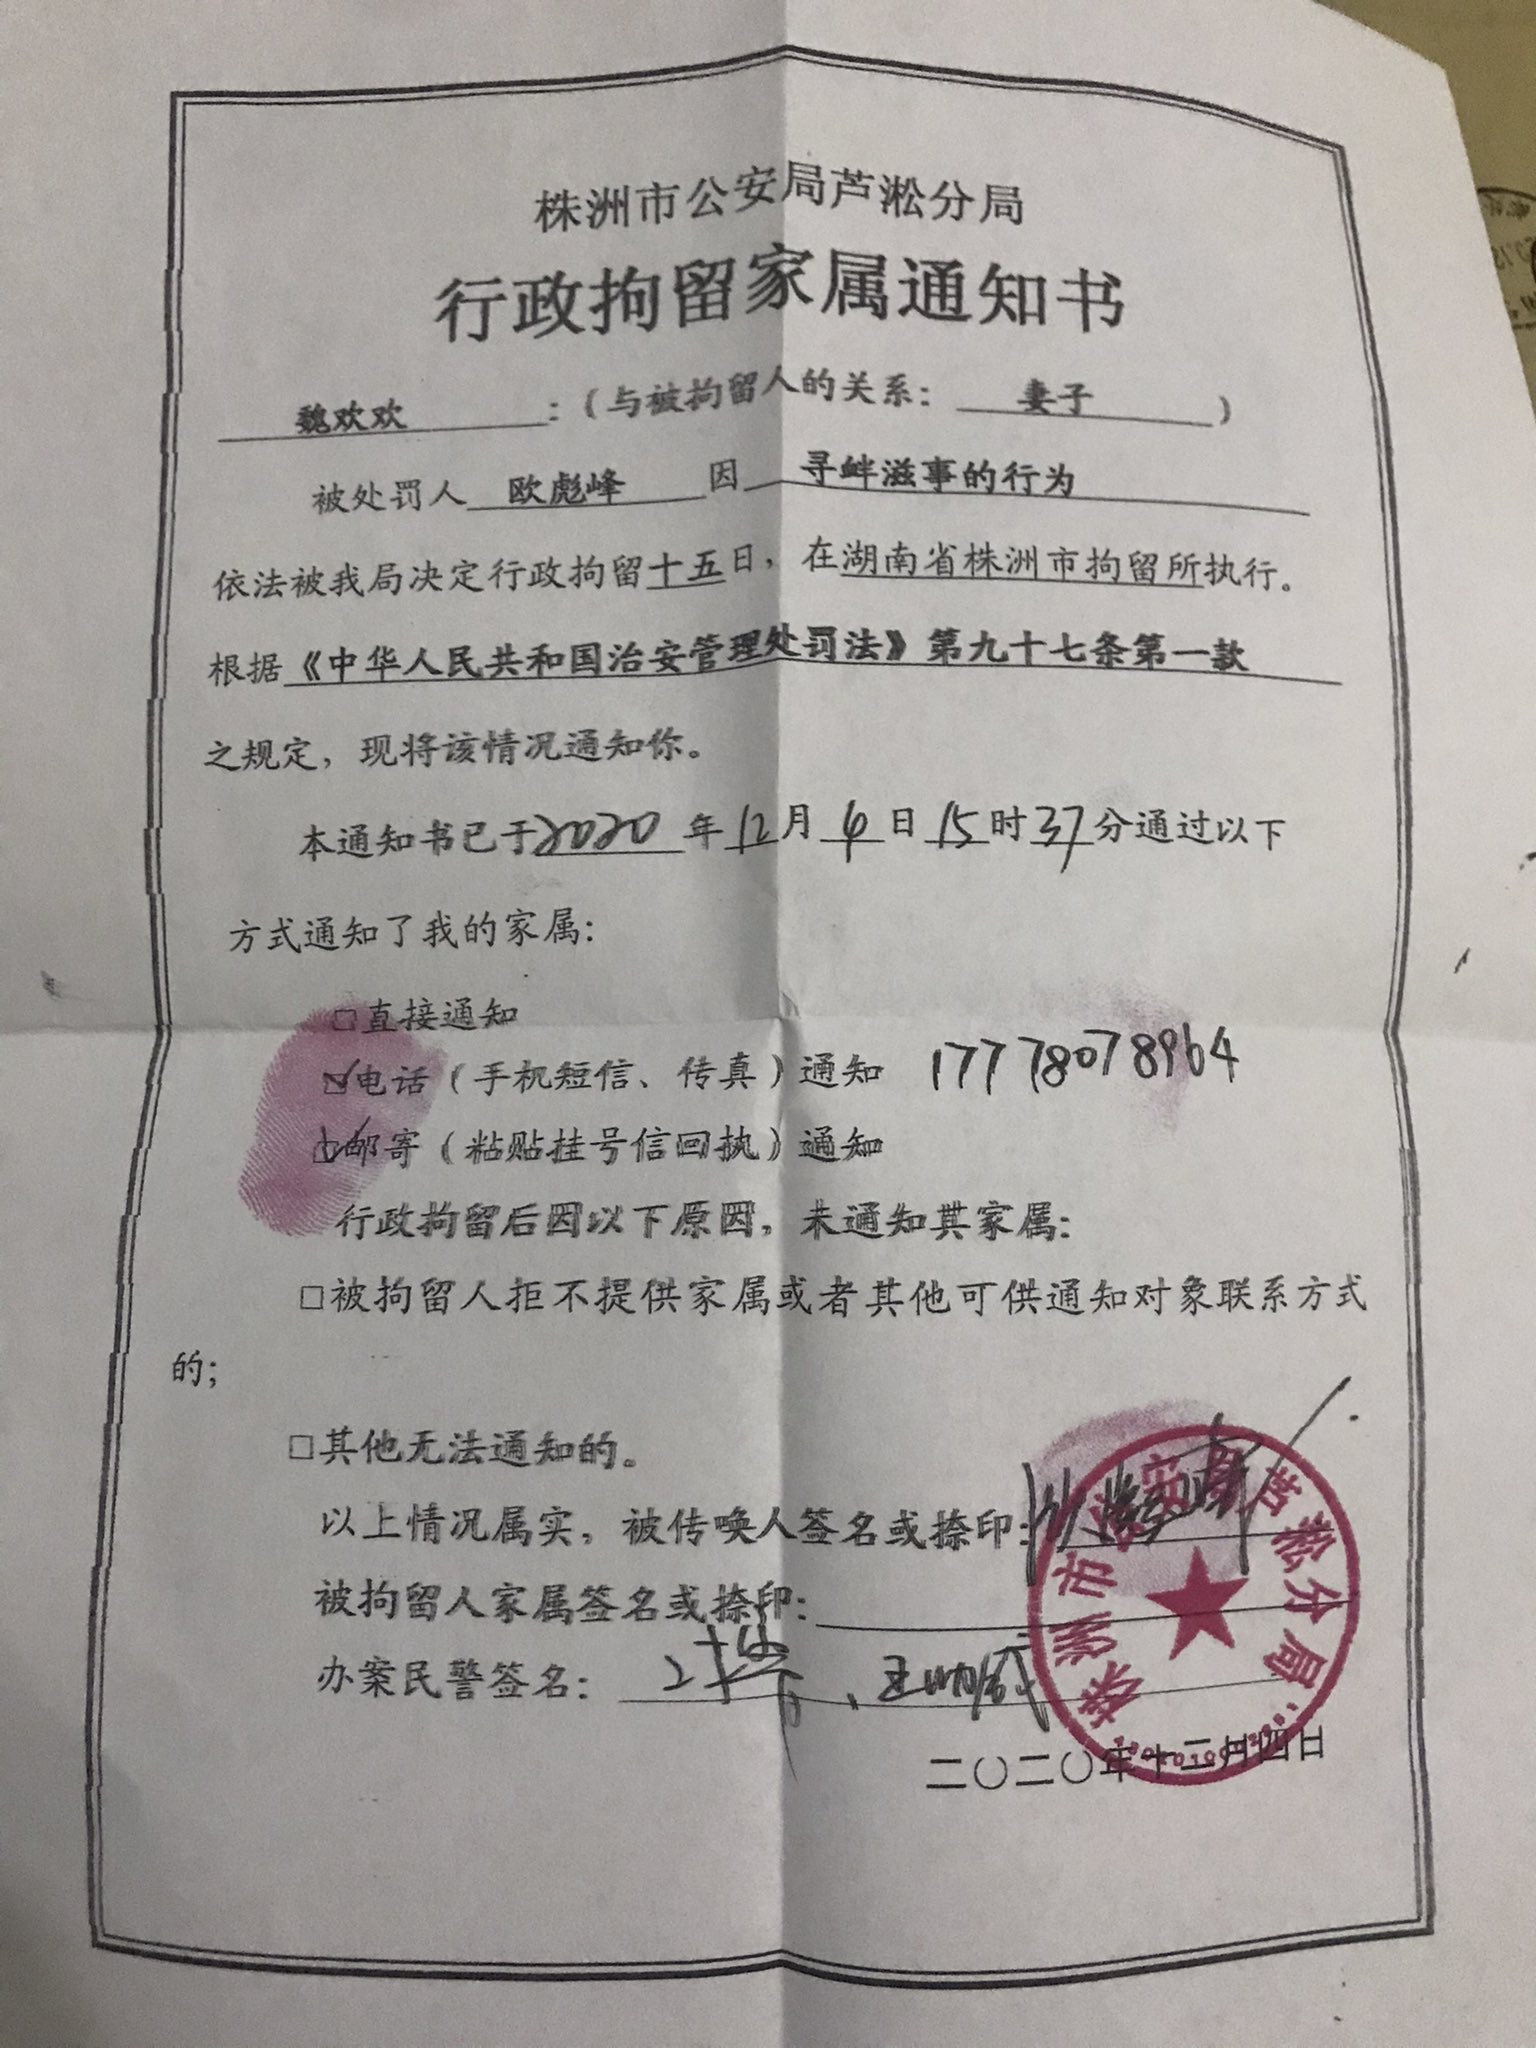 株洲市公安局芦淞分局
行政拘留家属通知书
魏欢欢:(与被拘留人的关系: 妻子)
被处罚人 欧彪峰 因 寻衅滋事的行为
依法被我局决定行政拘留十五日，在湖南省株洲市拘留所执行。
根据《中华人民共和国治安管理处罚法》第九十七条第一款
之规定，现将该情况通知你。
本通知书已于2020年12月4日15时37分通过以下
方式通知了我的家属:
□直接通知
☑电话(手机短信、传真)通知 17778078964
☑邮寄(粘贴挂号信回执)通知
行政拘留后因以下原因，未通知其家属:
□被拘留人拒不提供家属或者其他可供通知对象联系方式
的;
□其他无法通知的。
以上情况属实，被传唤人签名或捺印:
被拘留人家属签名或捺印:
办案民警签名:
株洲市公安局芦淞分局
二〇二〇年十二月四日